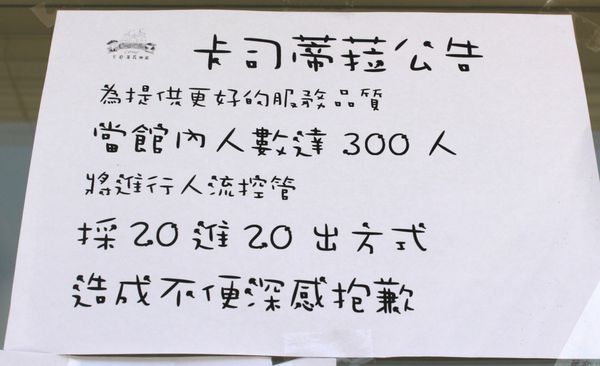 卡司蒂菈公告
為提供更好的服務品質
當館內人數達 300 人
將進行人流控管
採 20 進 20 出方式
造成不便深感抱歉